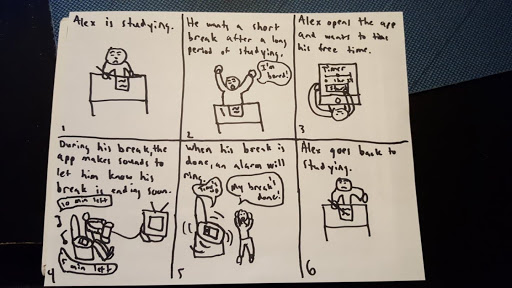 Alex is studying.
1
He wants a short
break after a long
period of studying.
I'm
bored!
2
Alex opens the app
and wants to time
his free time.
Timer
Start
3
During his break, the
app makes sounds to
let him know his
break is ending soon.
10 min left
5 min left
4
When his break is
done, an alarm will
ring.
Time's
up
My break's
done.
5
Alex goes back to
studying.
6